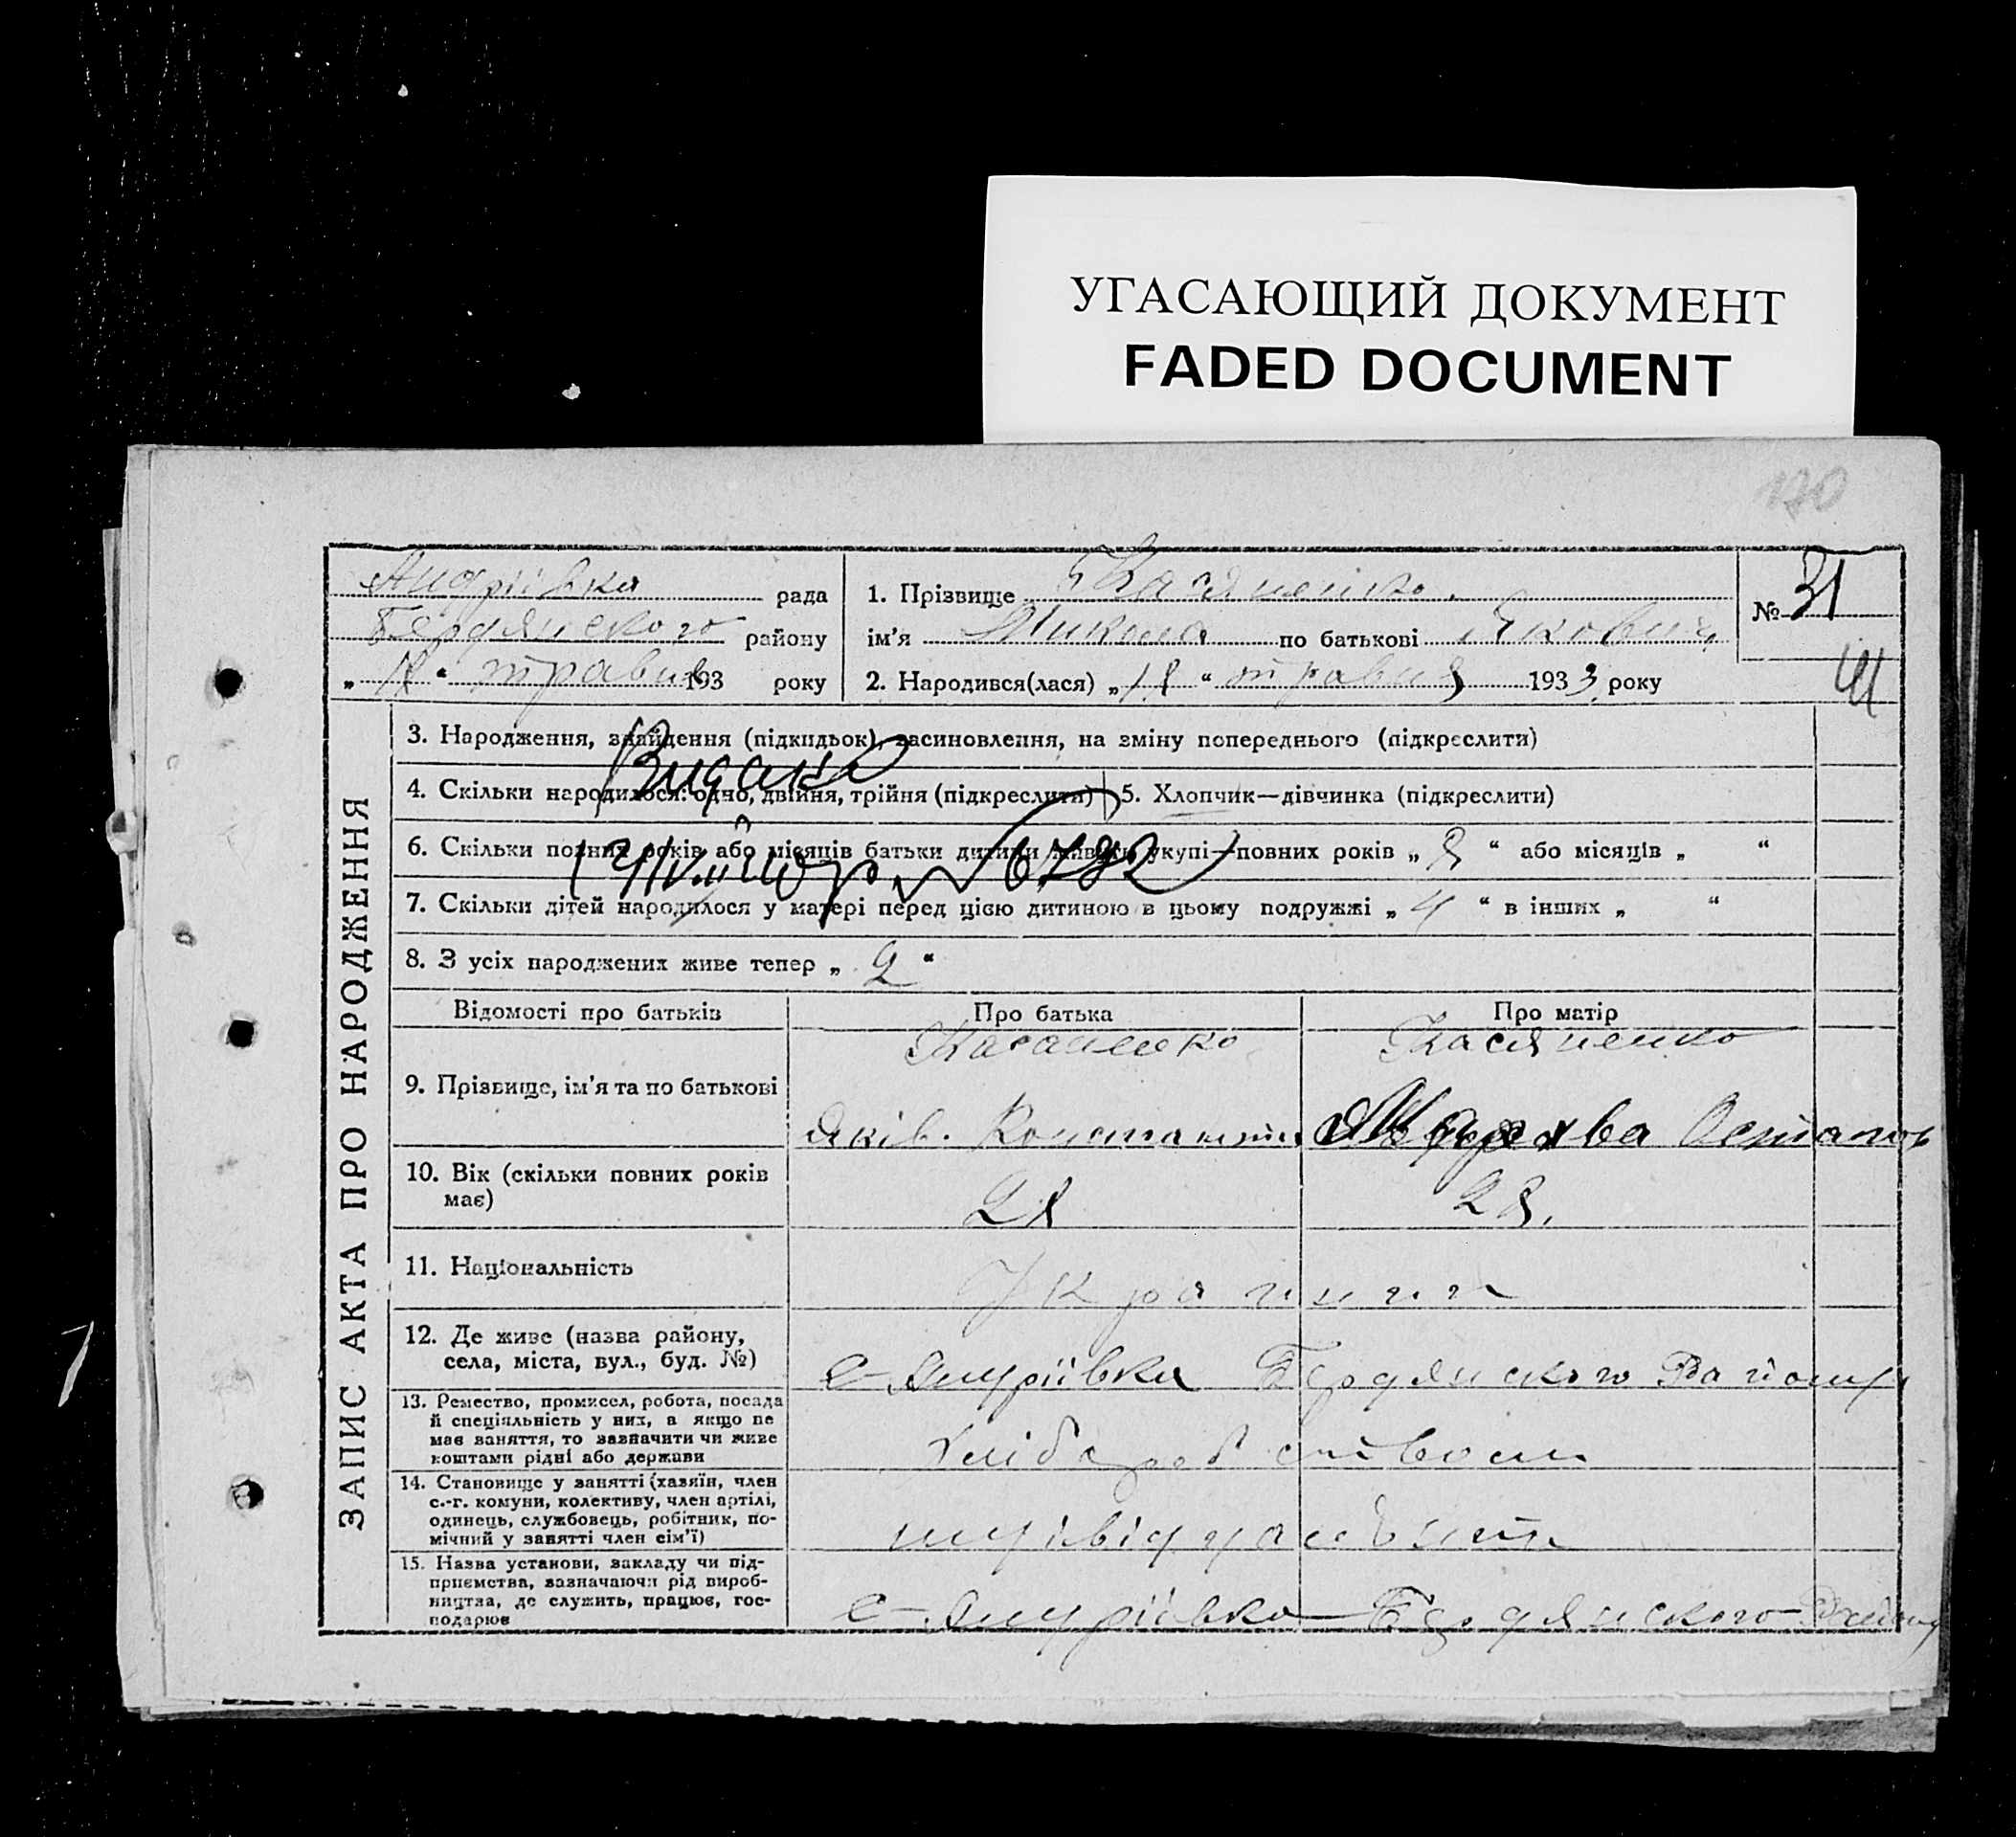 УГАСАЮЩИЙ ДОКУМЕНТ
FADED DOCUMENT
170
Андріївка рада
Бердянского району
„ “ травня 193 року
1. Прізвище Касяненко.
ім’я Микола по батькові Якович
2. Народився(лася) „18“ травня 1933 року
№ 31
ЗАПИС АКТА ПРО НАРОДЖЕННЯ
3. Народження, знайдення (підкидьок), засиновлення, на зміну попереднього (підкреслити)
4. Скільки народилося: одно, двійня, трійня (підкреслити)
5. Хлопчик—дівчинка (підкреслити)
6. Скільки повних років або місяців батьки дитини живуть укупі—повних років „8“ або місяців „ “
7. Скільки дітей народилося у матері перед цією дитиною в цьому подружжі „4“ в інших „ “
8. З усіх народжених живе тепер „2“
Відомості про батьків
Про батька
Про матір
9. Прізвище, ім’я та по батькові
Касаненко
Яків. Констант
Касяненко
Остапов
10. Вік (скільки повних років
має)
28
28.
11. Національність
Украинци
12. Де живе (назва району,
села, міста, вул., буд. №)
с-Андріївка Бердянского Району
13. Ремество, промисел, робота, посада
й спеціяльність у них, а якщо не
має заняття, то зазначити чи живе
коштами рідні або держави
хлібаробством
14. Становище у занятті (хазяїн, член
с.-г. комуни, колективу, член артілі,
одинець, службовець, робітник, по-
мічний у занятті член сім’ї)
15. Назва установи, закладу чи під-
приємства, зазначаючи рід вироб-
ництва, де служить, працює, гос-
подарює
с-Андріівка Бердянского Району